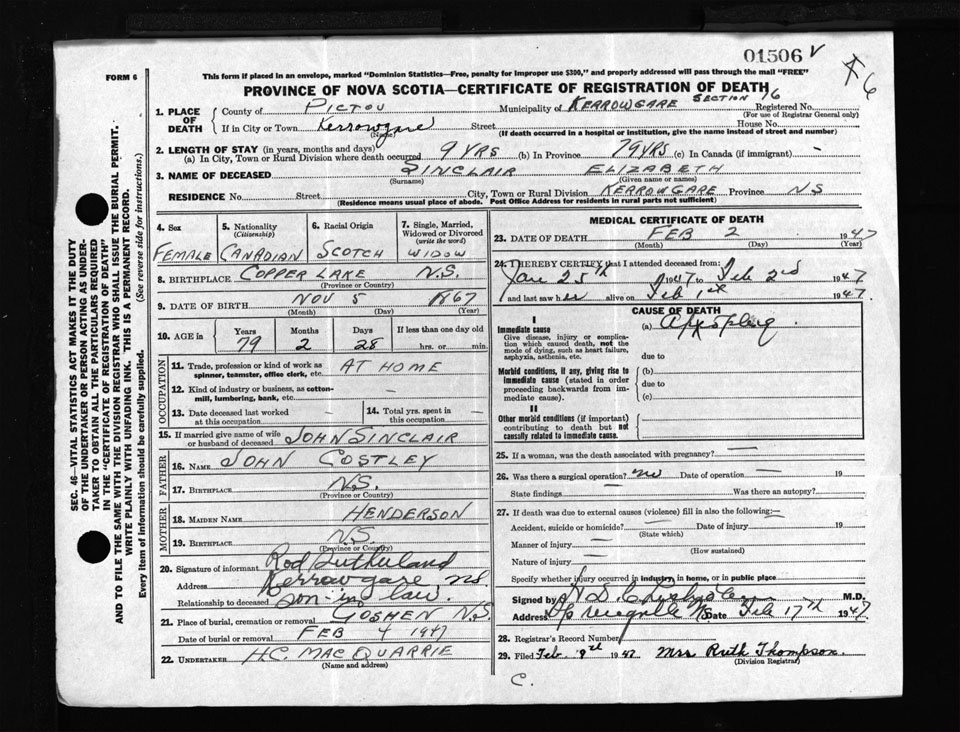 01506 V
6
FORM 6
This form if placed in an envelope, marked "Dominion Statistics—Free, penalty for improper use $300," and properly addressed will pass through the mail "FREE"
PROVINCE OF NOVA SCOTIA—CERTIFICATE OF REGISTRATION OF DEATH
1. PLACE OF DEATH County of PICTOU Municipality of KERROWGARE SECTION 16 Registered No.
(For use of Registrar General only)
If in City or Town Kerrowgare Street House No.
(Name) (If death occurred in a hospital or institution, give the name instead of street and number)
2. LENGTH OF STAY (in years, months and days)
(a) In City, Town or Rural Division where death occurred 9 YRS (b) In Province 79 YRS (c) In Canada (if immigrant) —
3. NAME OF DECEASED SINCLAIR ELIZABETH
(Surname) (Given name or names)
RESIDENCE No. Street City, Town or Rural Division KERROWGARE Province NS
(Residence means usual place of abode. Post Office Address for residents in rural parts not sufficient)
4. Sex 5. Nationality (Citizenship) 6. Racial Origin 7. Single, Married, Widowed or Divorced (write the word)
FEMALE CANADIAN SCOTCH WIDOW
8. BIRTHPLACE COPPER LAKE N.S.
(Province or Country)
9. DATE OF BIRTH NOV 5 1867
(Month) (Day) (Year)
10. AGE in Years Months Days If less than one day old
79 2 28 hrs. or min.
OCCUPATION
11. Trade, profession or kind of work as spinner, teamster, office clerk, etc. AT HOME
12. Kind of industry or business, as cotton-mill, lumbering, bank, etc. —
13. Date deceased last worked at this occupation — 14. Total yrs. spent in this occupation —
15. If married give name of wife or husband of deceased JOHN SINCLAIR
FATHER
16. NAME JOHN COSTLEY
17. BIRTHPLACE N.S.
(Province or Country)
MOTHER
18. MAIDEN NAME HENDERSON
19. BIRTHPLACE N.S.
(Province or Country)
20. Signature of informant Rod Sutherland
Address Kerrowgare NS
Relationship to deceased son-in-law.
21. Place of burial, cremation or removal GOSHEN N.S.
Date of burial or removal FEB 4 1947
22. UNDERTAKER H.C. MACQUARRIE
(Name and address)
MEDICAL CERTIFICATE OF DEATH
23. DATE OF DEATH FEB 2 1947
(Month) (Day) (Year)
24. I HEREBY CERTIFY that I attended deceased from
Jan 25th 1947 to Feb 2nd 1947
and last saw her alive on Feb 1st 1947.
CAUSE OF DEATH
I
Immediate cause (a) Apoplexy.
Give disease, injury or complication which caused death, not the mode of dying, such as heart failure, asphyxia, asthenia, etc.
due to
Morbid conditions, if any, giving rise to immediate cause (stated in order proceeding backwards from immediate cause).
(b)
due to
(c)
II
Other morbid conditions (if important) contributing to death but not causally related to immediate cause.
25. If a woman, was the death associated with pregnancy? —
26. Was there a surgical operation? no Date of operation — 19
State findings Was there an autopsy?
27. If death was due to external causes (violence) fill in also the following:—
Accident, suicide or homicide? — Date of injury 19
(State which)
Manner of injury —
(How sustained)
Nature of injury —
Specify whether injury occurred in industry, in home, or in public place
Signed by M.D.
Address Date Feb 17th 1947
28. Registrar's Record Number
29. Filed Feb. 1947 Mrs Ruth Thompson.
(Division Registrar)
C.
SEC. 46—VITAL STATISTICS ACT MAKES IT THE DUTY
OF THE UNDERTAKER OR PERSON ACTING AS UNDER-
TAKER TO OBTAIN ALL THE PARTICULARS REQUIRED
IN THE "CERTIFICATE OF REGISTRATION OF DEATH"
AND TO FILE THE SAME WITH THE DIVISION REGISTRAR WHO SHALL ISSUE THE BURIAL PERMIT.
WRITE PLAINLY WITH UNFADING INK. THIS IS A PERMANENT RECORD.
Every item of information should be carefully supplied. (See reverse side for instructions.)